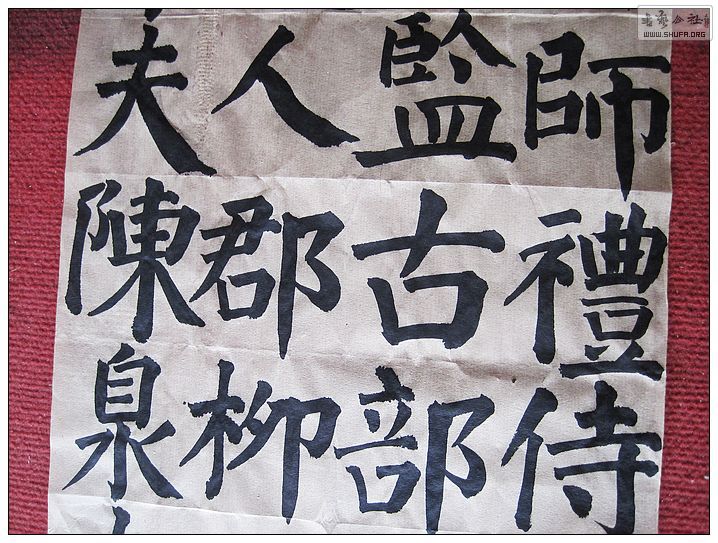 師禮侍
監古部
人郡柳
夫陳
书艺公社
WWW.SHUFA.ORG